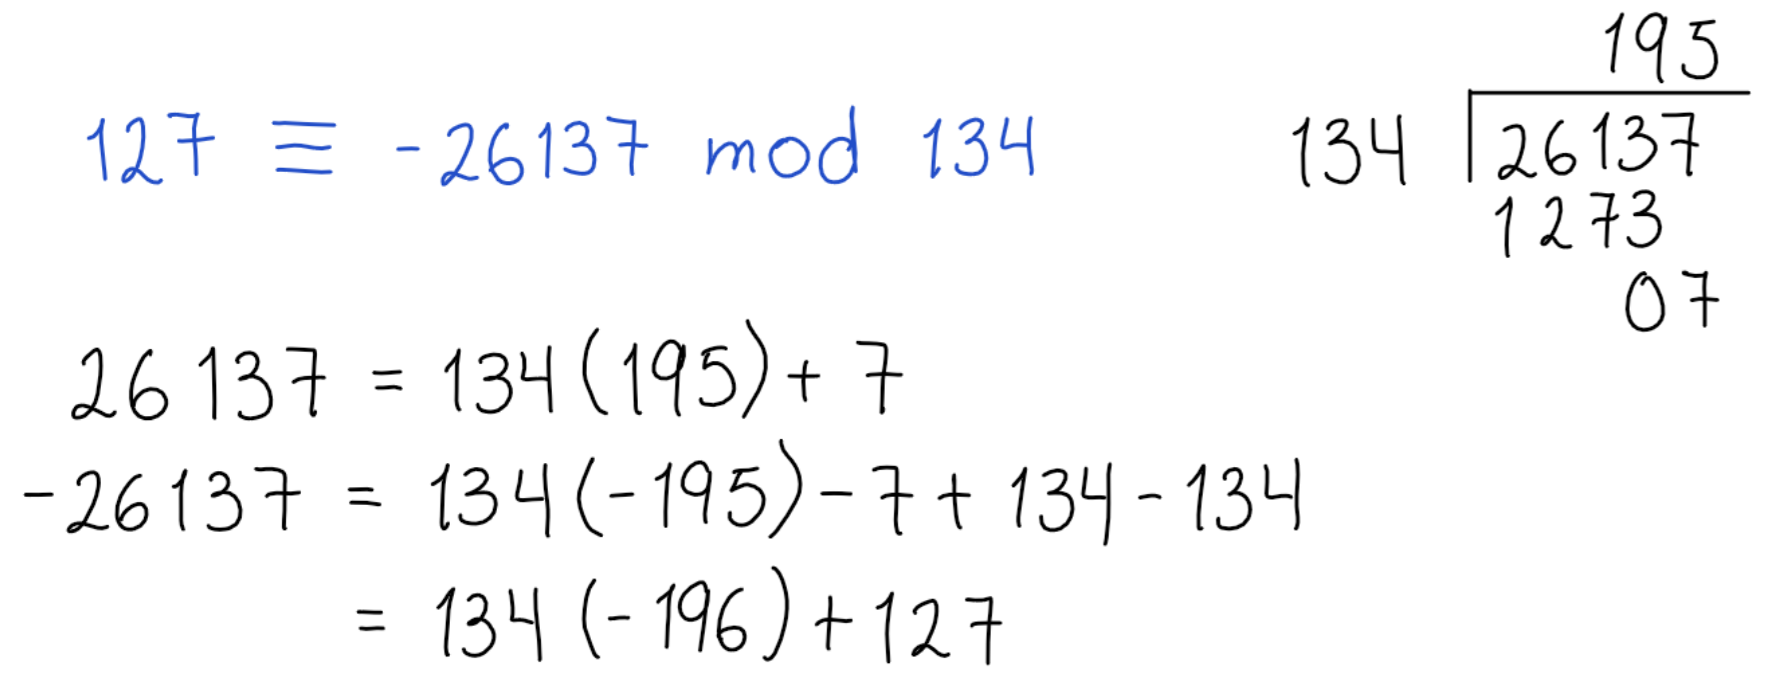 127 ≡ -26137 mod 134
195
134 26137
1273
07
26137 = 134(195)+ 7
-26137 = 134(-195)-7+ 134-134
= 134(-196)+127